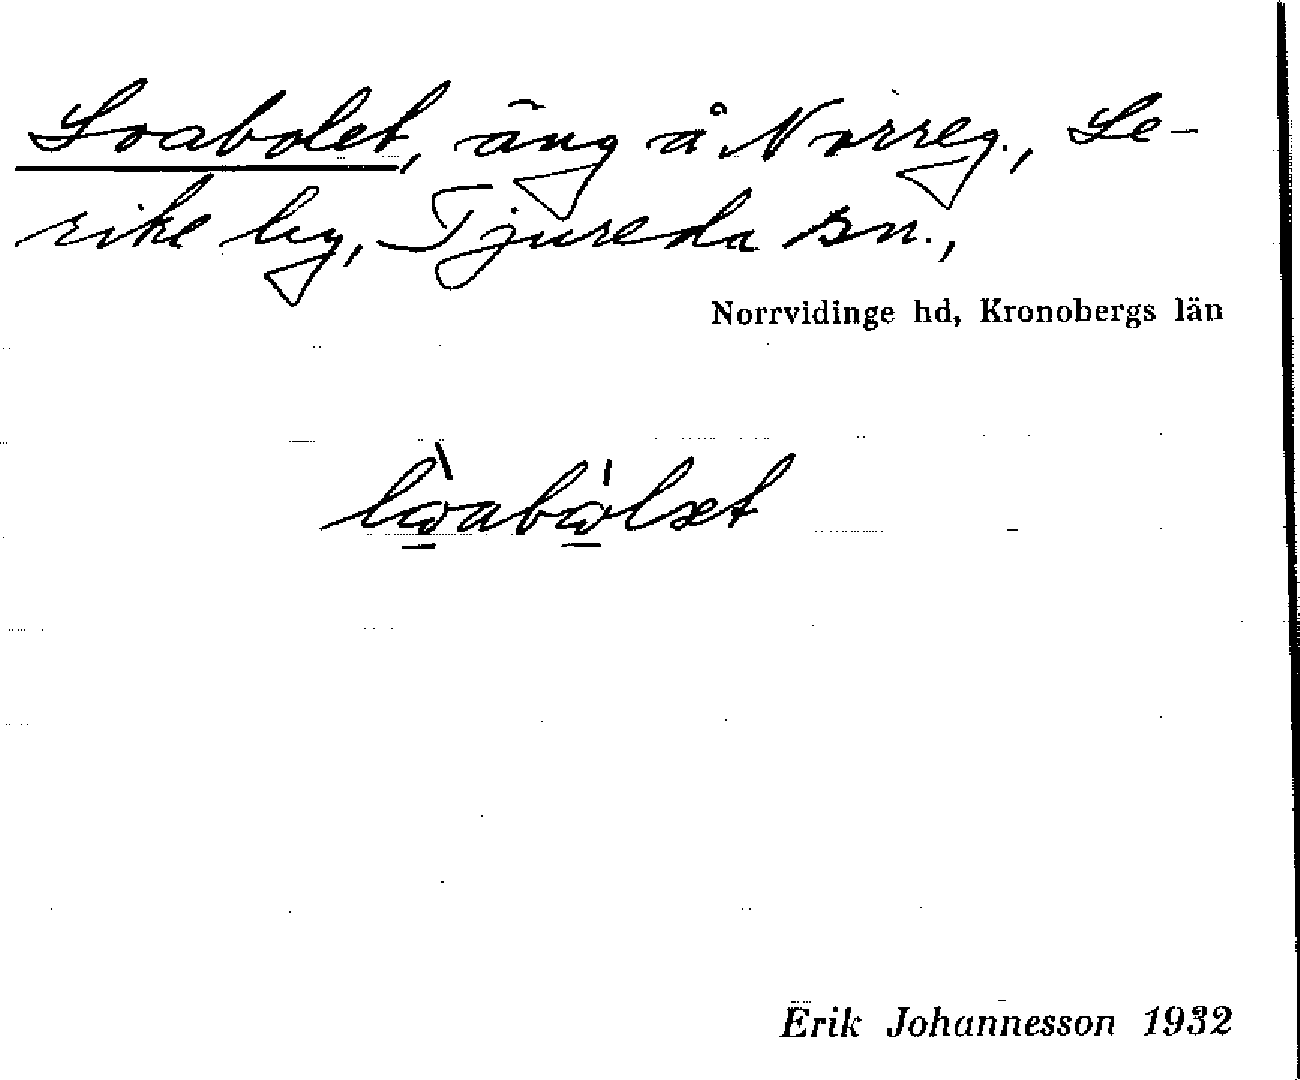 Loabolet, äng å Norreg., Le-
rike by, Tjureda sn.,
Norrvidinge hd, Kronobergs län
Erik Johannesson 1932